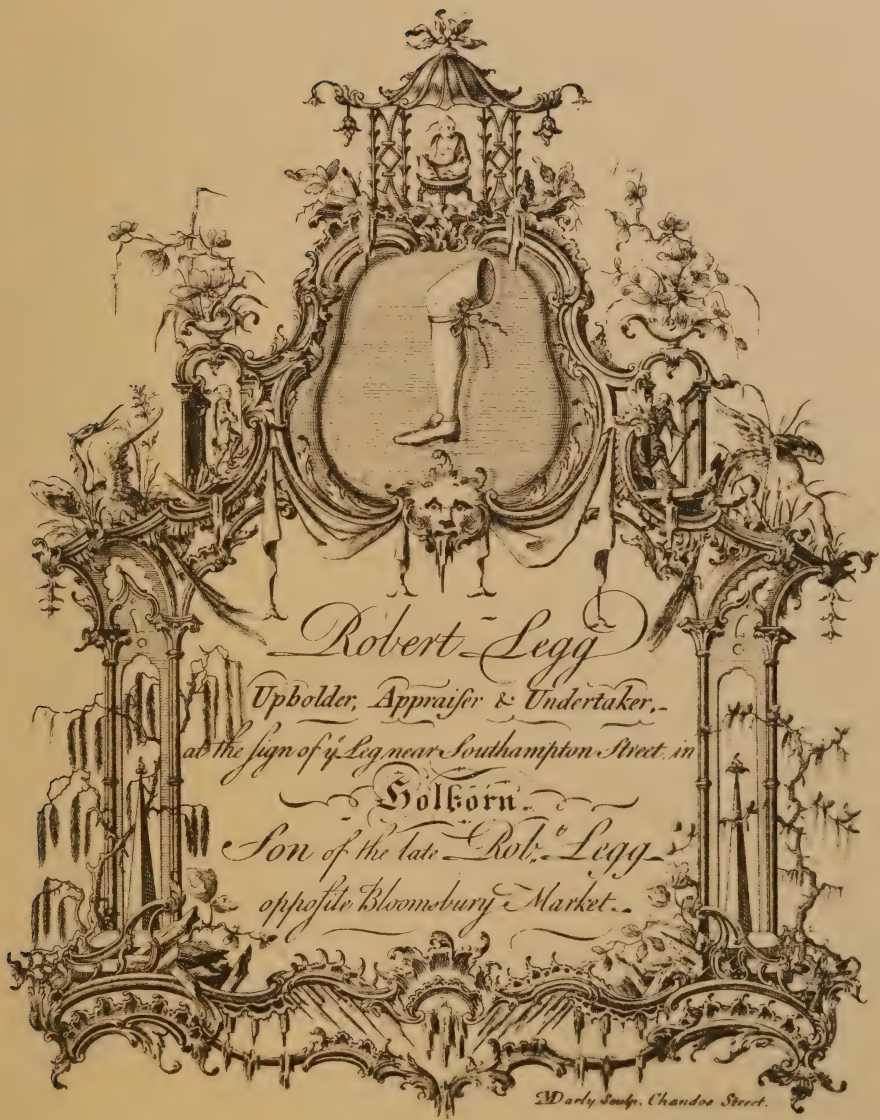 Robert Legg
Upholder, Appraiſer & Undertaker,
at the ſign of yͤ Leg near Southampton Street, in
Holborn.
Son of the late Robᵗ. Legg
oppoſite Bloomsbury Market.
MDarly Sculp. Chandos Street.